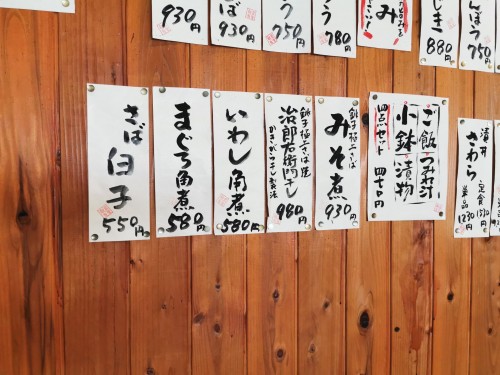 930円
ば
930円
う
750円
う
780円
み
じき
880円
んぼう
750円
さば白子
550円
まぐろ角煮
580円
いわし角煮
580円
銚子極上さば使
治郎右衛門干し
980円
銚子極上さば
みそ煮
930円
ご飯
つみれ汁
小鉢
漬物
四点セット
四七〇円
酒井
さわら
定食
単品
1230円